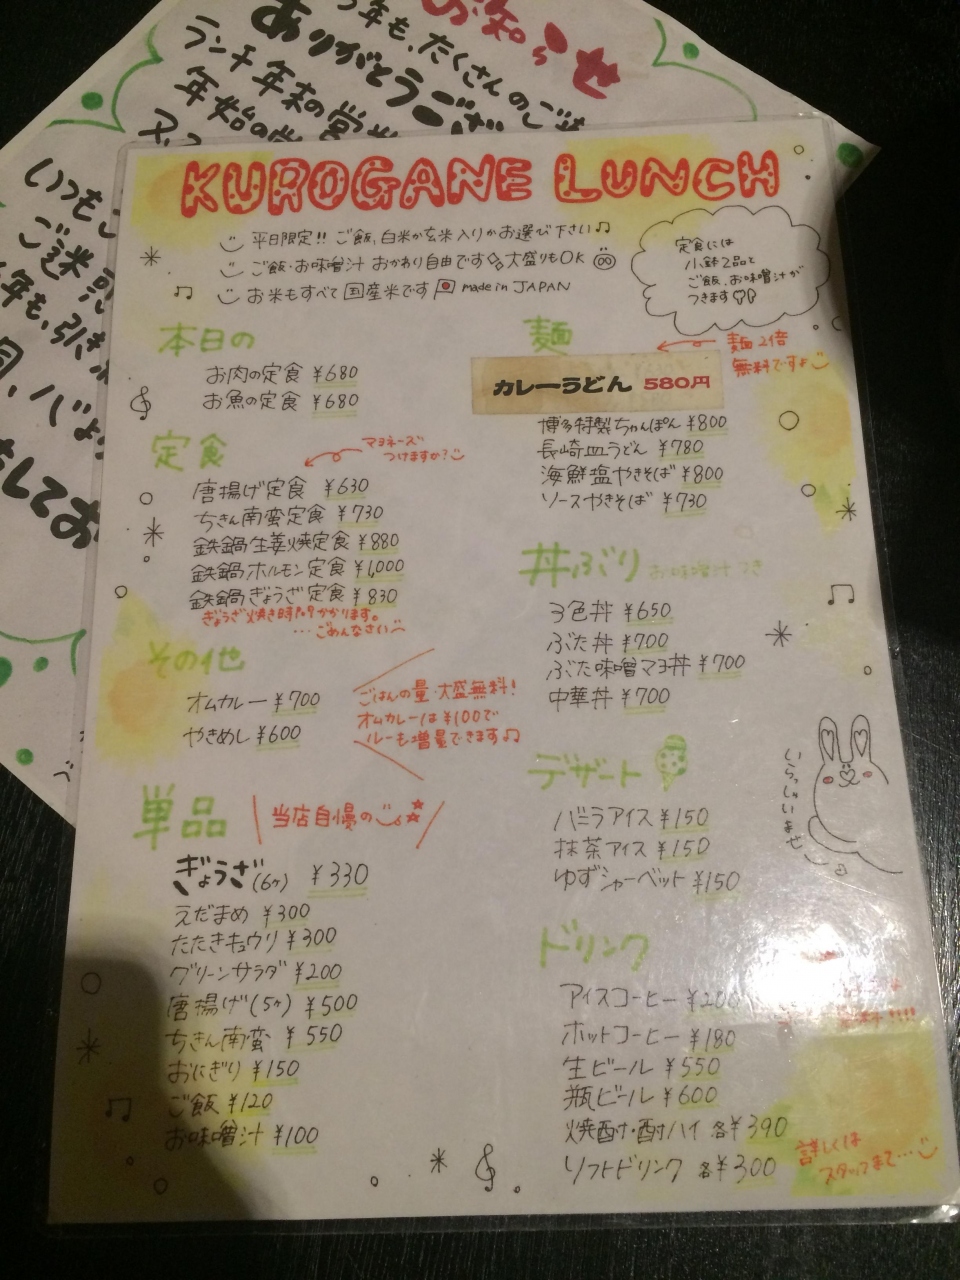 お知らせ
年も、たくさんのご
ありがとうござ
ランチ年末の営業
年始の営
いつも
年も、引き
KUROGANE LUNCH
平日限定!! ご飯、白米か玄米入りかお選び下さい♫
ご飯・お味噌汁 おかわり自由です 大盛りもOK
お米もすべて国産米です made in JAPAN
定食には
小鉢2品と
ご飯、お味噌汁が
つきます
本日の
お肉の定食 ¥680
お魚の定食 ¥680
定食
マヨネーズ
つけますか?
唐揚げ定食 ¥630
ちきん南蛮定食 ¥730
鉄鍋生姜焼定食 ¥880
鉄鍋ホルモン定食 ¥1,000
鉄鍋ぎょうざ定食 ¥830
ぎょうざ焼き時間かかります。
…ごめんなさい
その他
オムカレー ¥700
やきめし ¥600
ごはんの量・大盛無料!
オムカレーは¥100で
ルーも増量できます♫
単品
当店自慢の
ぎょうざ(6ヶ) ¥330
えだまめ ¥300
たたきキュウリ ¥300
グリーンサラダ ¥200
唐揚げ(5ヶ) ¥500
ちきん南蛮 ¥550
おにぎり ¥150
ご飯 ¥120
お味噌汁 ¥100
麺
麺2倍
無料ですよ
カレーうどん 580円
博多特製ちゃんぽん ¥800
長崎皿うどん ¥780
海鮮塩やきそば ¥800
ソースやきそば ¥730
丼ぶり お味噌汁つき
3色丼 ¥650
ぶた丼 ¥700
ぶた味噌マヨ丼 ¥700
中華丼 ¥700
デザート
バニラアイス ¥150
抹茶アイス ¥150
ゆずシャーベット ¥150
いらっしゃいませ
ドリンク
アイスコーヒー ¥200
ホットコーヒー ¥180
生ビール ¥550
瓶ビール ¥600
焼酎・酎ハイ 各¥390
ソフトドリンク 各¥300
詳しくは
スタッフまで…